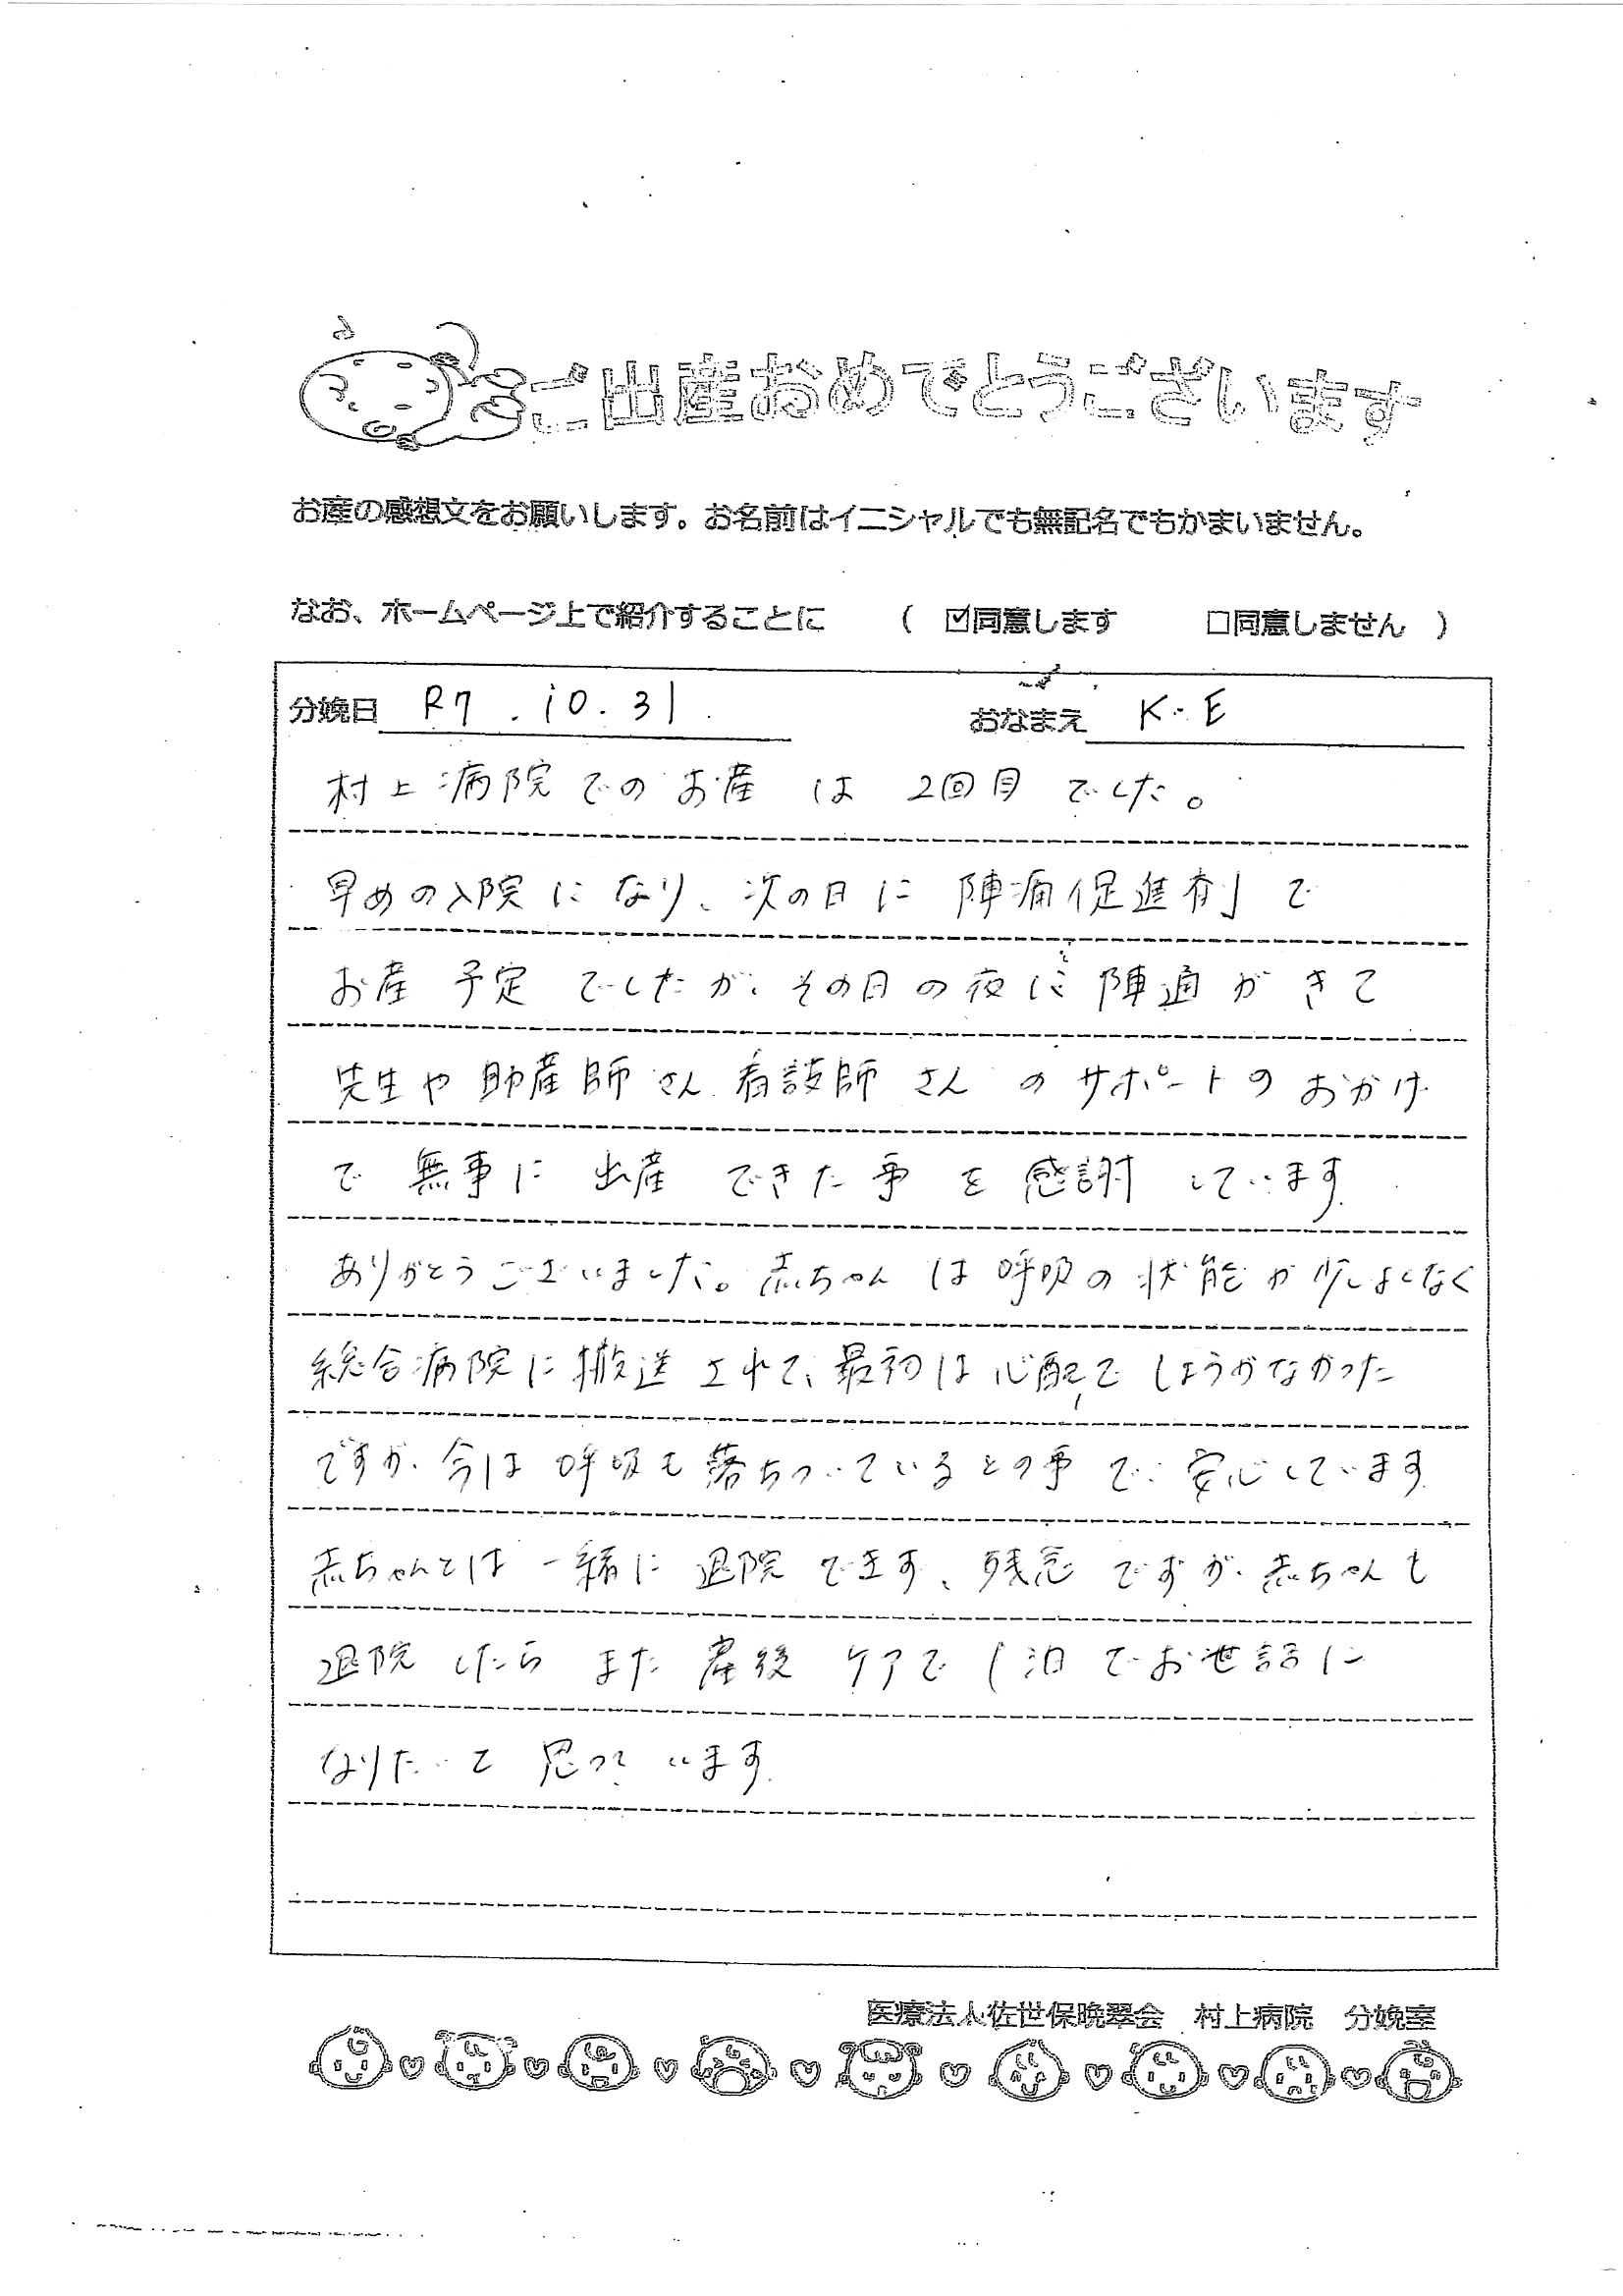 ご出産おめでとうございます
お産の感想文をお願いします。お名前はイニシャルでも無記名でもかまいません。
なお、ホームページ上で紹介することに （ ☑同意します □同意しません ）
分娩日 R7.10.31 おなまえ K.E
村上病院でのお産は2回目でした。
早めの入院になり、次の日に陣痛促進剤で
お産予定でしたが、その日の夜に陣通がきて
先生や助産師さん、看護師さんのサポートのおかげ
で無事に出産できた事を感謝しています
ありがとうございました。赤ちゃんは呼吸の状態が少しよくなく
総合病院に搬送されて、最初は心配でしょうがなかった
ですが、今は呼吸も落ちついているとの事で、安心しています
赤ちゃんとは一緒に退院できず、残念ですが、赤ちゃんも
退院したらまた産後ケアで1泊でお世話に
なりたいと思っています
医療法人佐世保晩翠会 村上病院 分娩室